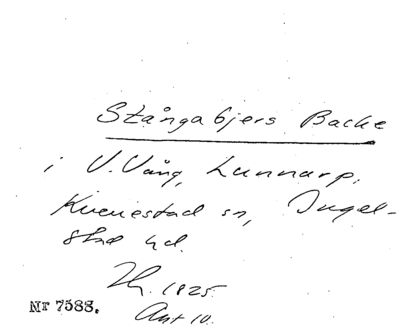 Stångabjers Backe
i V. Vång, Lunnarp.
Kverrestad sn, Ingel-
stad hd.
Th. 1825.
Ant 10.
Nr 7588.